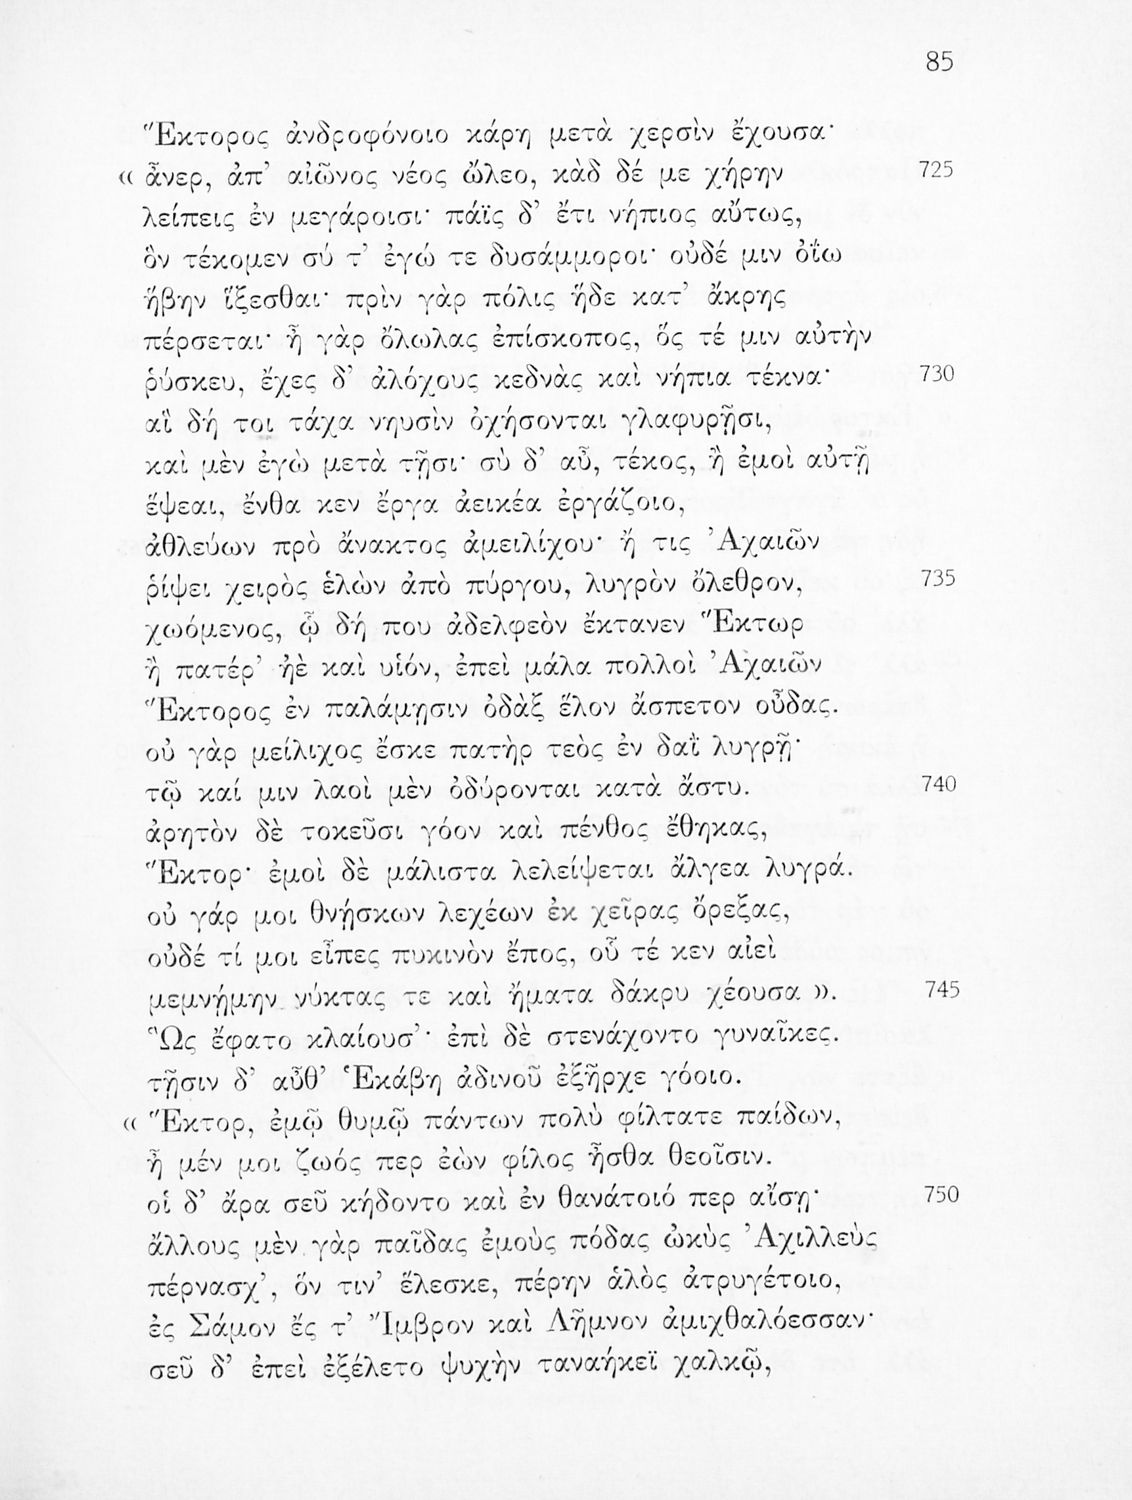 85
Ἕκτορος ἀνδροφόνοιο κάρη μετὰ χερσὶν ἔχουσα·
« ἆνερ, ἀπ’ αἰῶνος νέος ὤλεο, κὰδ δέ με χήρην 725
λείπεις ἐν μεγάροισι· πάϊς δ’ ἔτι νήπιος αὔτως,
ὃν τέκομεν σύ τ’ ἐγώ τε δυσάμμοροι· οὐδέ μιν ὀΐω
ἥβην ἵξεσθαι· πρὶν γὰρ πόλις ἥδε κατ’ ἄκρης
πέρσεται· ἦ γὰρ ὄλωλας ἐπίσκοπος, ὅς τέ μιν αὐτὴν
ῥύσκευ, ἔχες δ’ ἀλόχους κεδνὰς καὶ νήπια τέκνα· 730
αἳ δή τοι τάχα νηυσὶν ὀχήσονται γλαφυρῇσι,
καὶ μὲν ἐγὼ μετὰ τῇσι· σὺ δ’ αὖ, τέκος, ἢ ἐμοὶ αὐτῇ
ἕψεαι, ἔνθα κεν ἔργα ἀεικέα ἐργάζοιο,
ἀθλεύων πρὸ ἄνακτος ἀμειλίχου· ἤ τις Ἀχαιῶν
ῥίψει χειρὸς ἑλὼν ἀπὸ πύργου, λυγρὸν ὄλεθρον, 735
χωόμενος, ᾧ δή που ἀδελφεὸν ἔκτανεν Ἕκτωρ
ἢ πατέρ’ ἠὲ καὶ υἱόν, ἐπεὶ μάλα πολλοὶ Ἀχαιῶν
Ἕκτορος ἐν παλάμῃσιν ὀδὰξ ἕλον ἄσπετον οὖδας.
οὐ γὰρ μείλιχος ἔσκε πατὴρ τεὸς ἐν δαῒ λυγρῇ·
τῷ καί μιν λαοὶ μὲν ὀδύρονται κατὰ ἄστυ. 740
ἀρητὸν δὲ τοκεῦσι γόον καὶ πένθος ἔθηκας,
Ἕκτορ· ἐμοὶ δὲ μάλιστα λελείψεται ἄλγεα λυγρά.
οὐ γάρ μοι θνῄσκων λεχέων ἐκ χεῖρας ὄρεξας,
οὐδέ τί μοι εἶπες πυκινὸν ἔπος, οὗ τέ κεν αἰεὶ
μεμνῄμην νύκτας τε καὶ ἤματα δάκρυ χέουσα ». 745
Ὣς ἔφατο κλαίουσ’· ἐπὶ δὲ στενάχοντο γυναῖκες.
τῇσιν δ’ αὖθ’ Ἑκάβη ἀδινοῦ ἐξῆρχε γόοιο.
« Ἕκτορ, ἐμῷ θυμῷ πάντων πολὺ φίλτατε παίδων,
ἦ μέν μοι ζωός περ ἐὼν φίλος ἦσθα θεοῖσιν.
οἱ δ’ ἄρα σεῦ κήδοντο καὶ ἐν θανάτοιό περ αἴσῃ· 750
ἄλλους μὲν γὰρ παῖδας ἐμοὺς πόδας ὠκὺς Ἀχιλλεὺς
πέρνασχ’, ὅν τιν’ ἕλεσκε, πέρην ἁλὸς ἀτρυγέτοιο,
ἐς Σάμον ἔς τ’ Ἴμβρον καὶ Λῆμνον ἀμιχθαλόεσσαν·
σεῦ δ’ ἐπεὶ ἐξέλετο ψυχὴν ταναήκεϊ χαλκῷ,